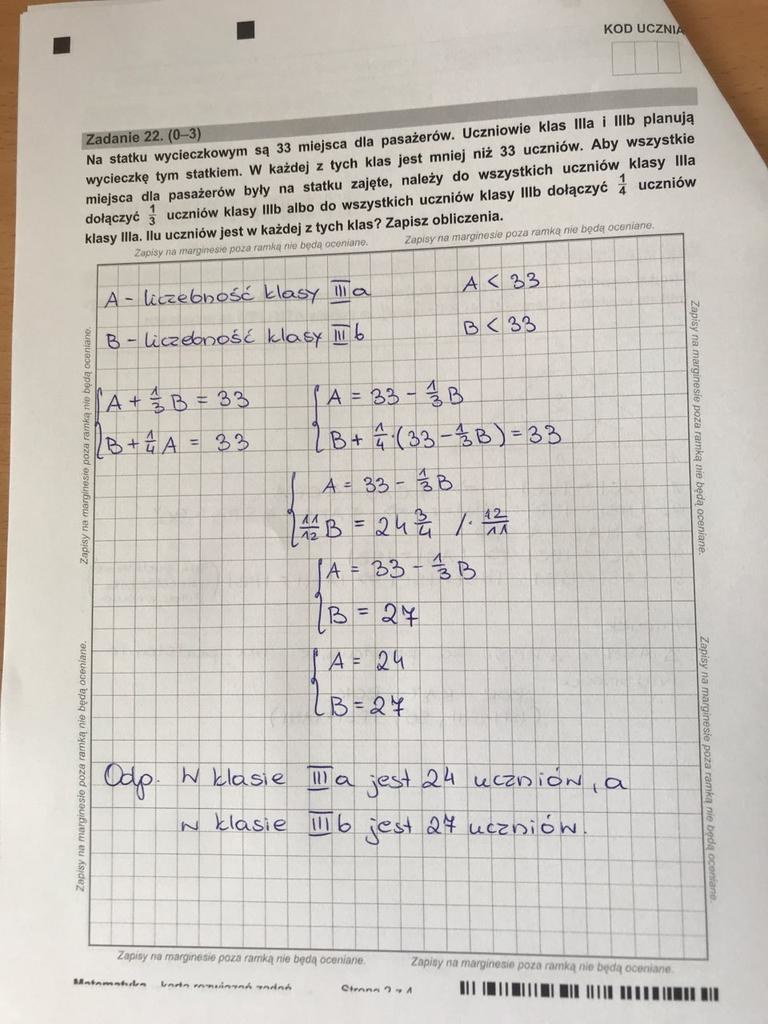 KOD UCZNIA
Zadanie 22. (0–3)
Na statku wycieczkowym są 33 miejsca dla pasażerów. Uczniowie klas IIIa i IIIb planują
wycieczkę tym statkiem. W każdej z tych klas jest mniej niż 33 uczniów. Aby wszystkie
miejsca dla pasażerów były na statku zajęte, należy do wszystkich uczniów klasy IIIa
dołączyć 1/3 uczniów klasy IIIb albo do wszystkich uczniów klasy IIIb dołączyć 1/4 uczniów
klasy IIIa. Ilu uczniów jest w każdej z tych klas? Zapisz obliczenia.
Zapisy na marginesie poza ramką nie będą oceniane. Zapisy na marginesie poza ramką nie będą oceniane.
A - liczebność klasy IIIa A < 33
B - liczebność klasy IIIb B < 33
{ A + 1/3 B = 33 { A = 33 - 1/3 B
B + 1/4 A = 33 B + 1/4 · (33 - 1/3 B) = 33
{ A = 33 - 1/3 B
11/12 B = 24 3/4 / · 12/11
{ A = 33 - 1/3 B
B = 27
{ A = 24
B = 27
Odp. W klasie IIIa jest 24 uczniów, a
w klasie IIIb jest 27 uczniów.
Zapisy na marginesie poza ramką nie będą oceniane.
Zapisy na marginesie poza ramką nie będą oceniane.
Zapisy na marginesie poza ramką nie będą oceniane.
Zapisy na marginesie poza ramką nie będą oceniane.
Zapisy na marginesie poza ramką nie będą oceniane. Zapisy na marginesie poza ramką nie będą oceniane.
Matematyka karta rozwiązań zadań Strona